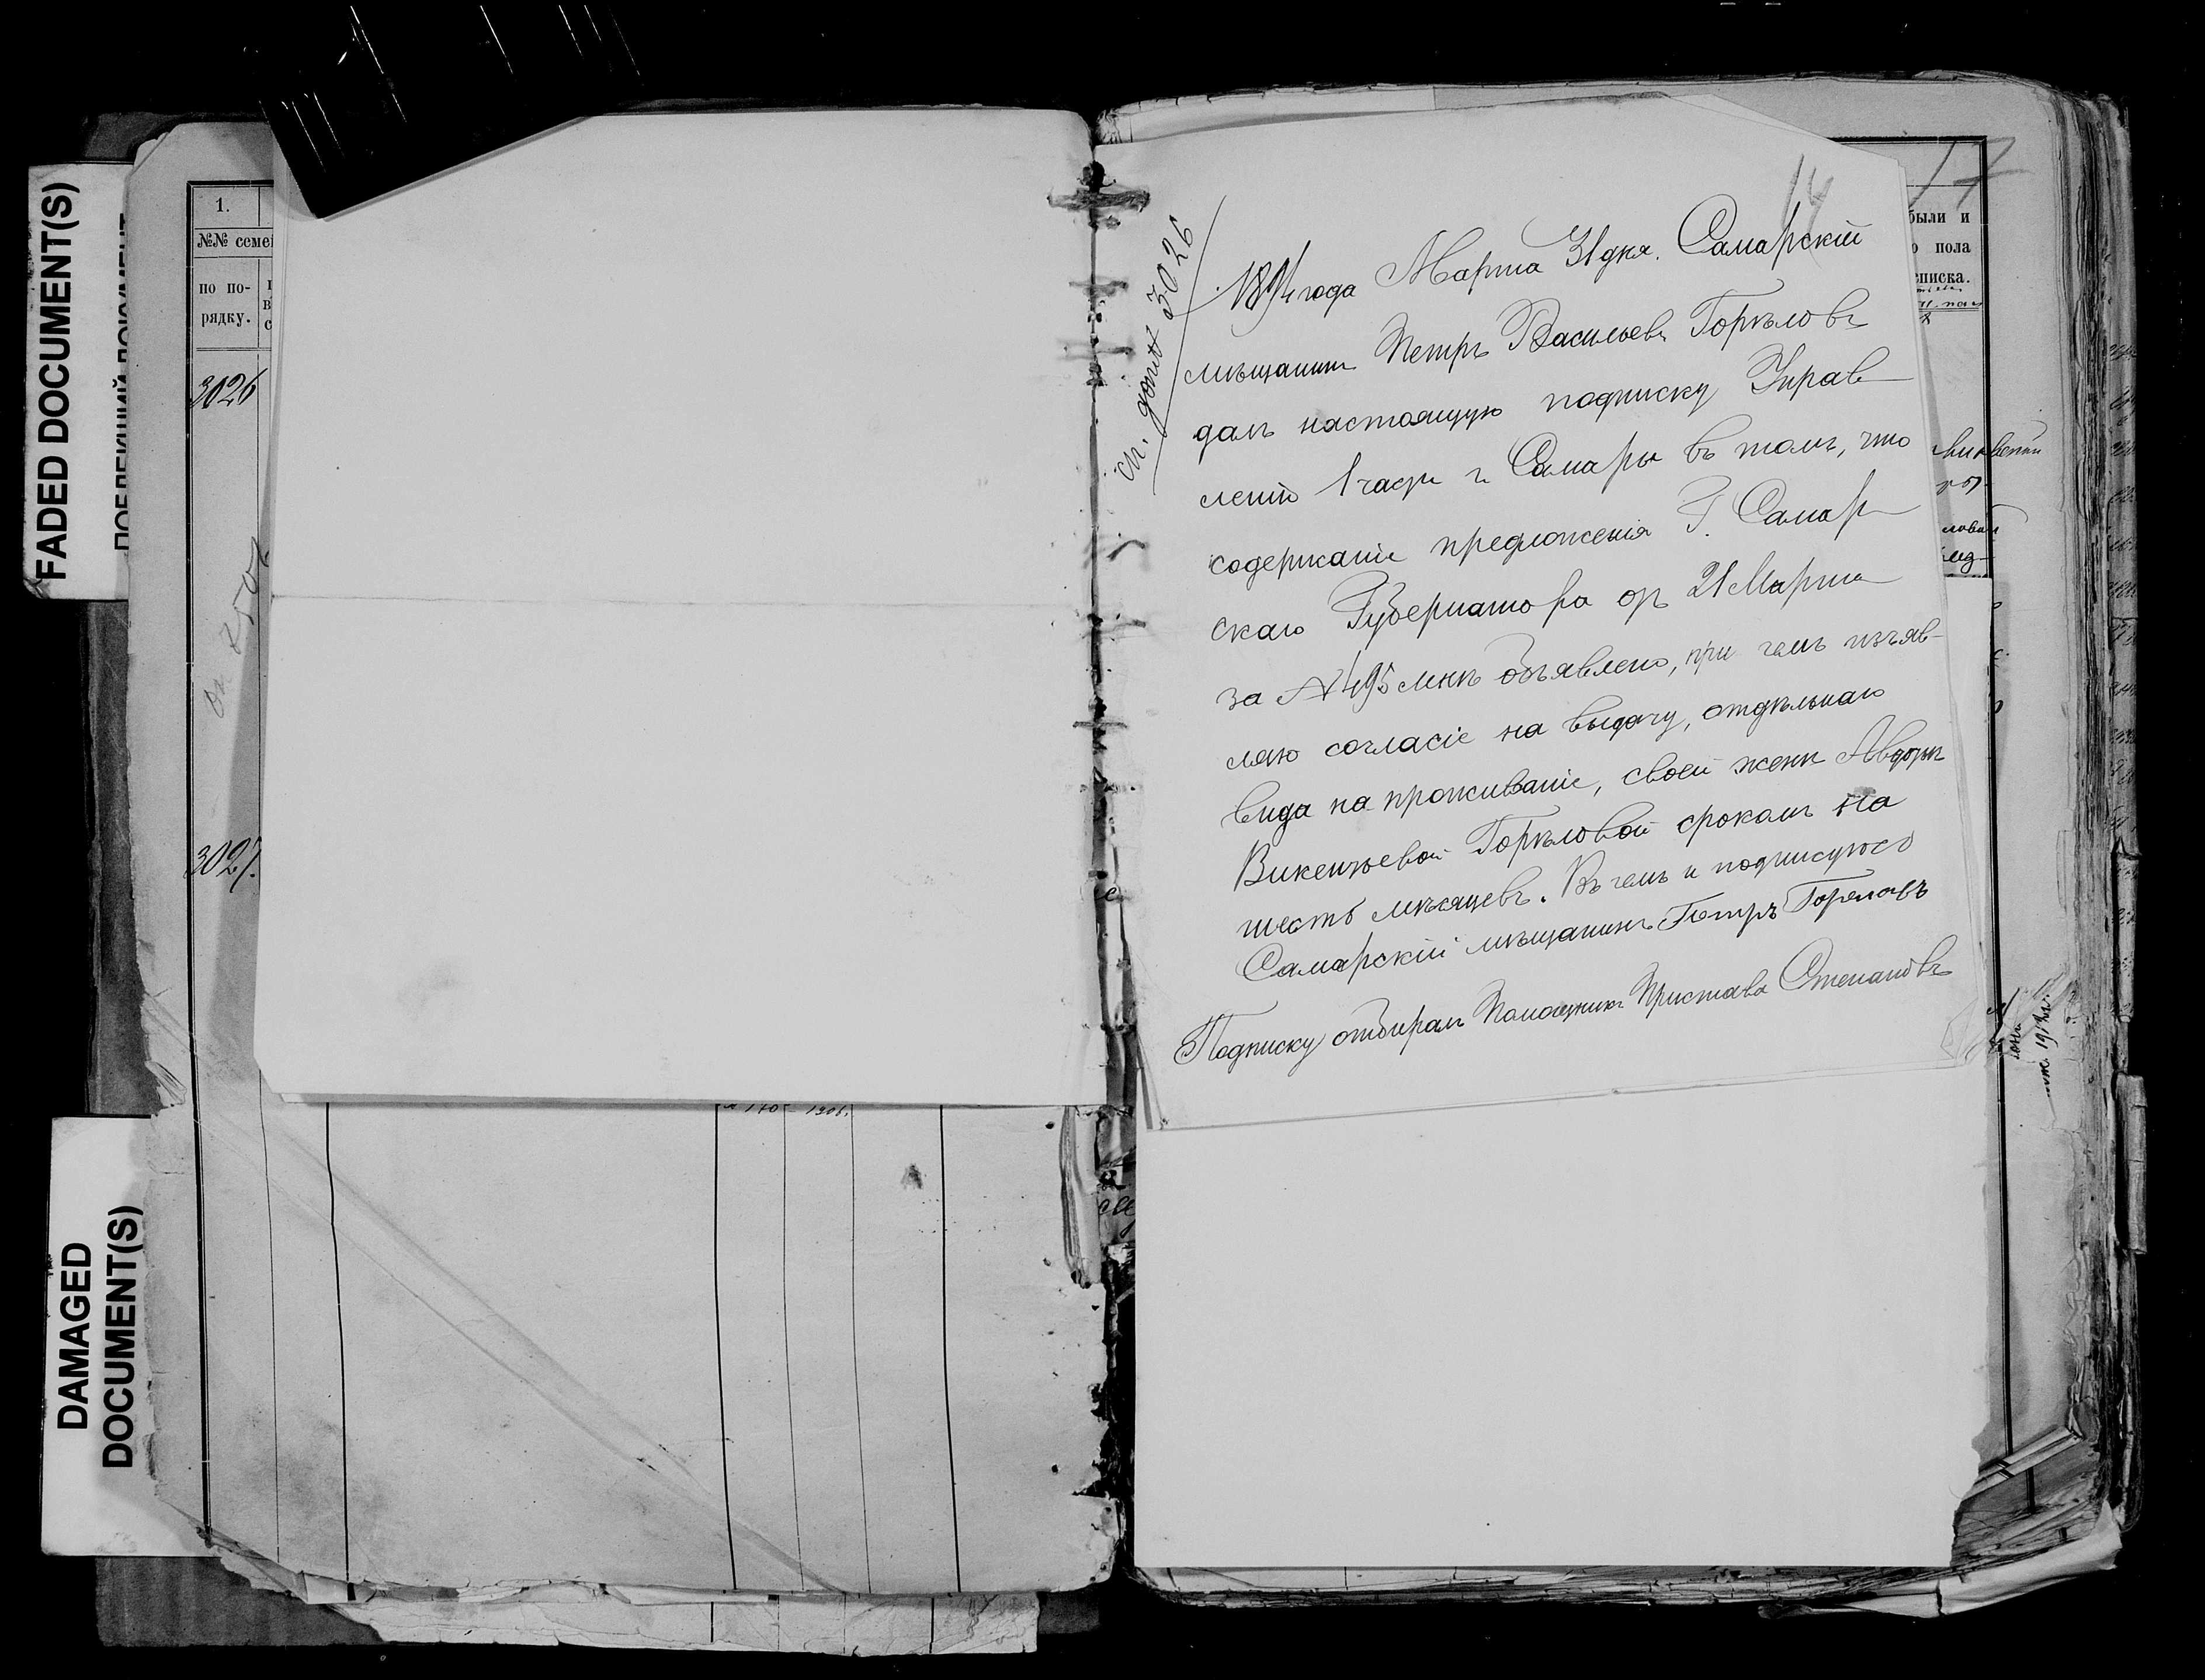 FADED DOCUMENT(S)
DAMAGED
DOCUMENT(S)
1.
№№ семе
по по-
рядку.
3026
3027.
17
14
были и
о пола
списка.
3026
1894 года Марта 31 дня. Самарскій
мѣщанинъ Петръ Васильевъ Горѣловъ
далъ настоящую подписку Управ
ленію 1 части г. Самары въ томъ, что
содержаніе предложенія Г. Самар
скаго Губернатора отъ 21 Марта
за № 495 мнѣ объявлено, при чемъ изъяв-
ляю согласіе на выдачу, отдѣльнаго
вида на проживаніе, своей женѣ Авдотьѣ
Викентьевой Горѣловой срокомъ на
шесть мѣсяцевъ. Въ чемъ и подписуюсь
Самарскій мѣщанинъ Петръ Гореловъ
Подписку отбиралъ Помощникъ Пристава Степановъ